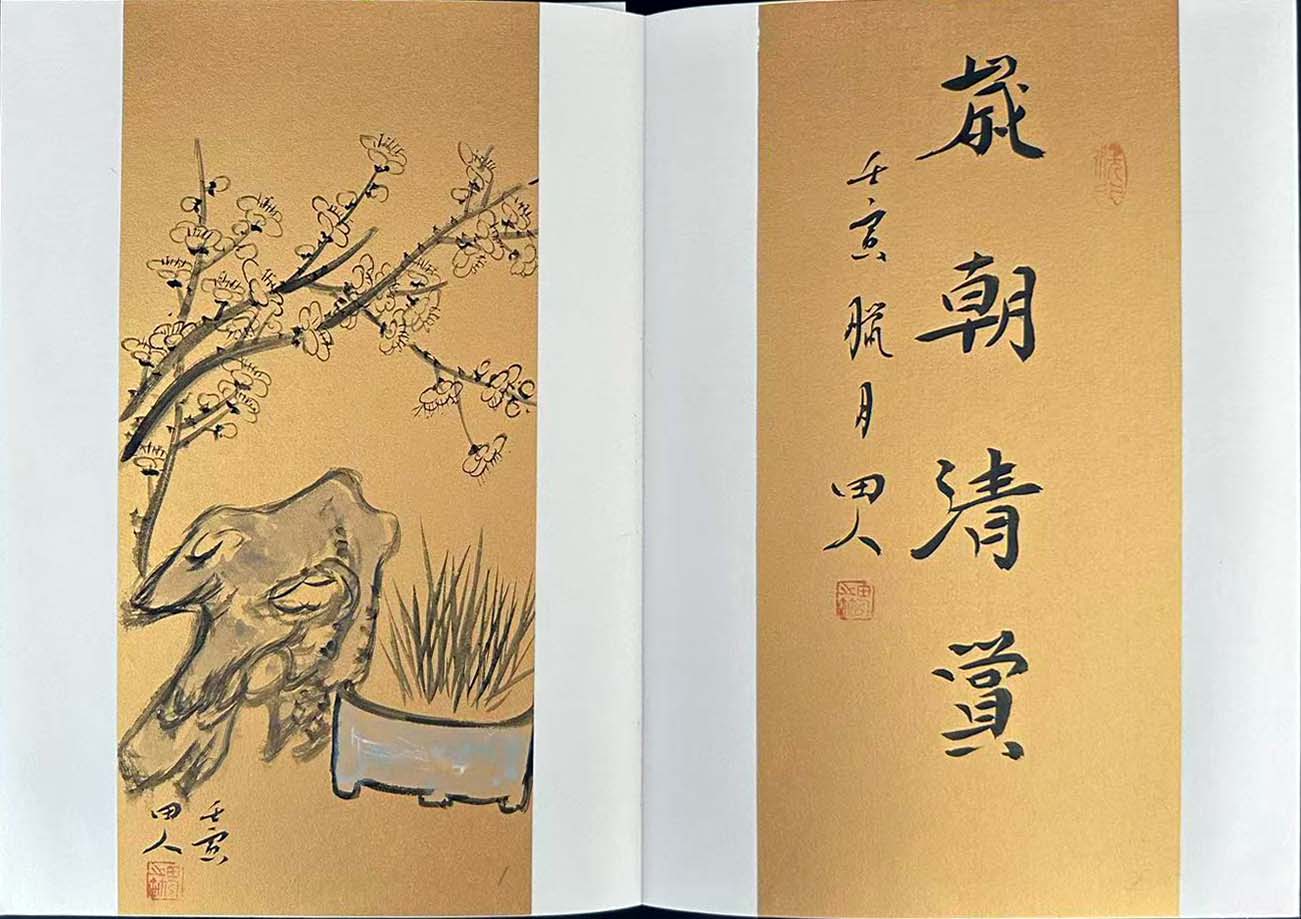 歲朝清賞
壬寅臘月田人
壬寅
田人